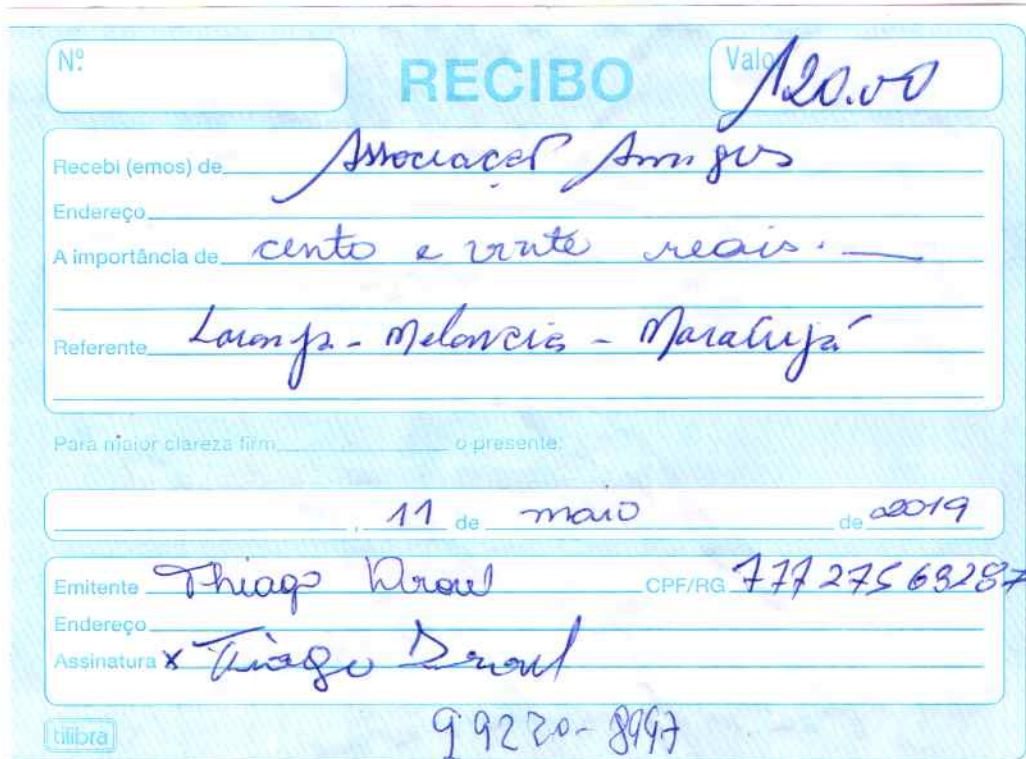 Nº RECIBO Valor 120.00
Recebi (emos) de Associação Amigos
Endereço
A importância de cento e vinte reais.
Referente Laranja - Melancia - Maracujá
Para maior clareza firm o presente:
, 11 de maio de 2019
Emitente Thiago CPF/RG
Endereço
Assinatura x Tiago
tilibra